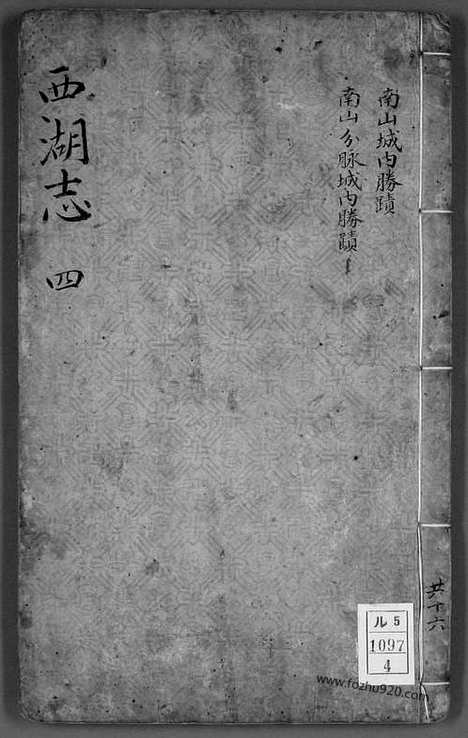 南山城内勝蹟
南山分脉城内勝蹟
西湖志 四
共十六
ル 5
1097
4
www.fozhu920.com